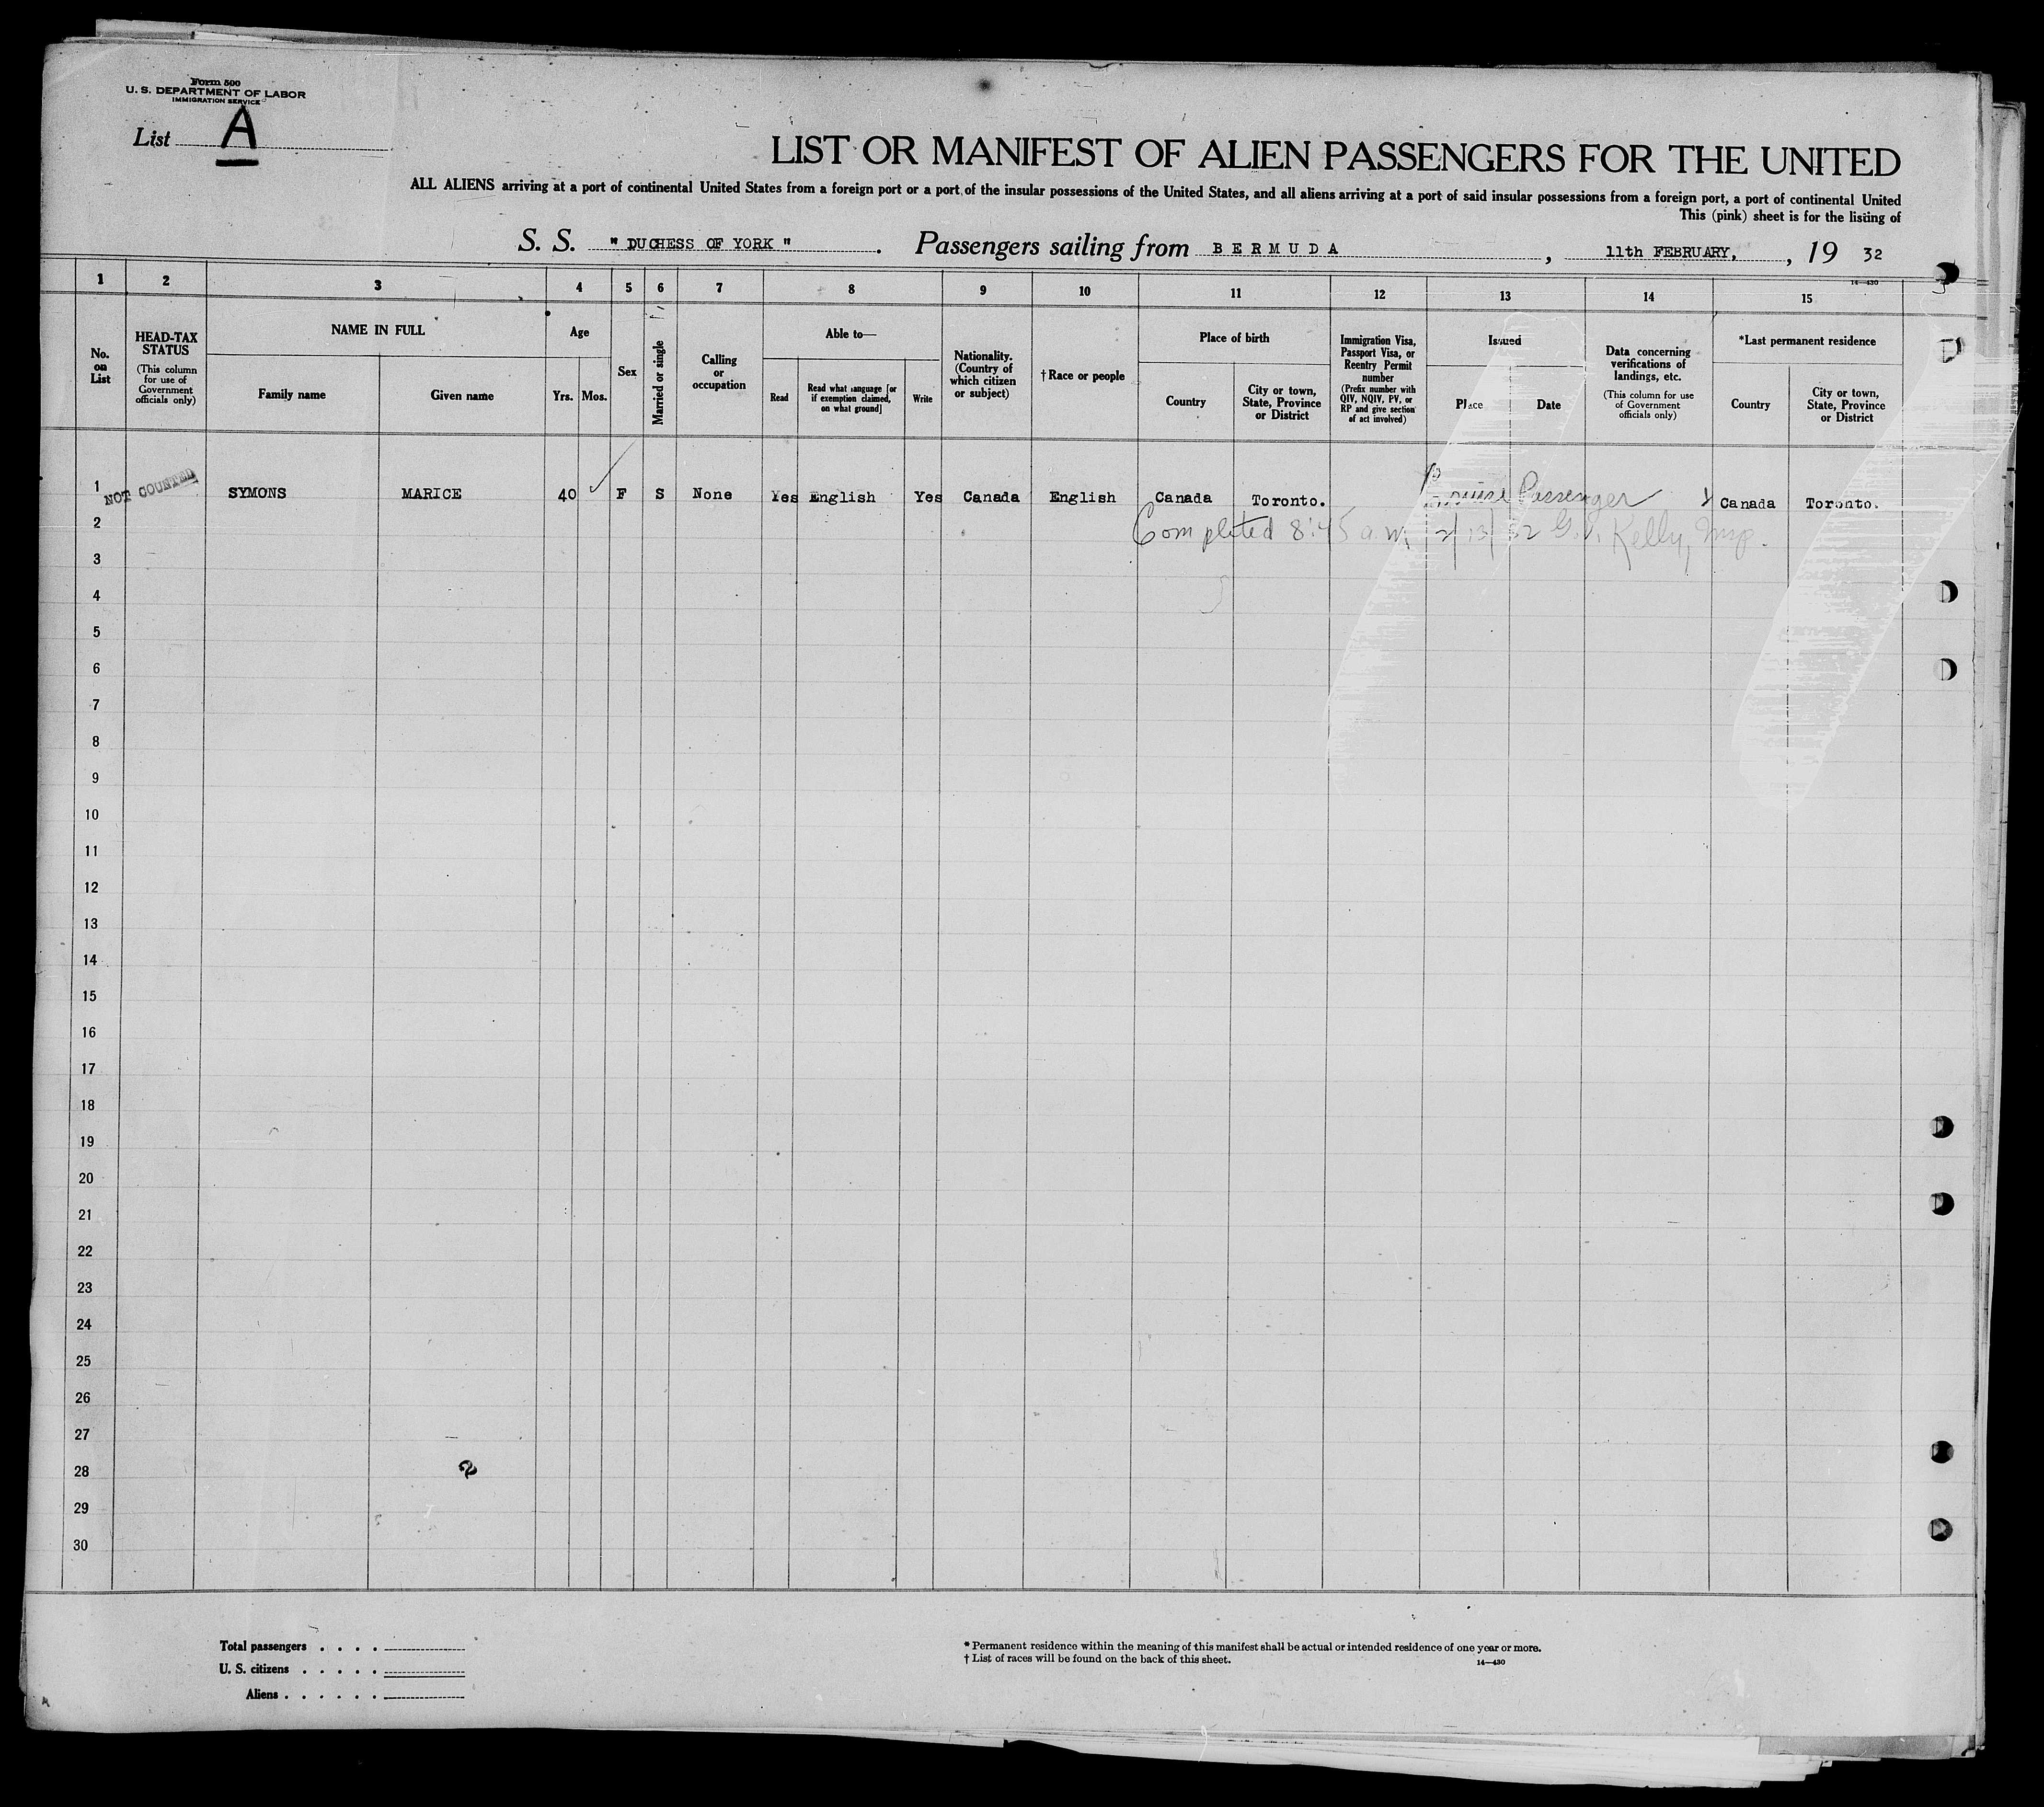 Form 500
U. S. DEPARTMENT OF LABOR
IMMIGRATION SERVICE
List A
LIST OR MANIFEST OF ALIEN PASSENGERS FOR THE UNITED
ALL ALIENS arriving at a port of continental United States from a foreign port or a port of the insular possessions of the United States, and all aliens arriving at a port of said insular possessions from a foreign port, a port of continental United
This (pink) sheet is for the listing of
S. S. " DUCHESS OF YORK " . Passengers sailing from BERMUDA , 11th FEBRUARY, , 19 32
14—430
1 2 3 4 5 6 7 8 9 10 11 12 13 14 15
No. on List
HEAD-TAX STATUS
(This column for use of Government officials only)
NAME IN FULL
Family name
Given name
Age
Yrs.
Mos.
Sex
Married or single
Calling or occupation
Able to—
Read
Read what language [or if exemption claimed, on what ground]
Write
Nationality. (Country of which citizen or subject)
†Race or people
Place of birth
Country
City or town, State, Province or District
Immigration Visa, Passport Visa, or Reentry Permit number
(Prefix number with QIV, NQIV, PV, or RP and give section of act involved)
Issued
Place
Date
Data concerning verifications of landings, etc.
(This column for use of Government officials only)
*Last permanent residence
Country
City or town, State, Province or District
1 NOT COUNTED SYMONS MARICE 40 F S None Yes English Yes Canada English Canada Toronto. Passenger Canada Toronto.
2 Completed 8:45 a.m. 2/13/32 Kelly, Insp.
3
4
5
6
7
8
9
10
11
12
13
14
15
16
17
18
19
20
21
22
23
24
25
26
27
28
29
30
Total passengers . . . .
U. S. citizens . . . . .
Aliens . . . . . .
* Permanent residence within the meaning of this manifest shall be actual or intended residence of one year or more.
† List of races will be found on the back of this sheet.
14—430